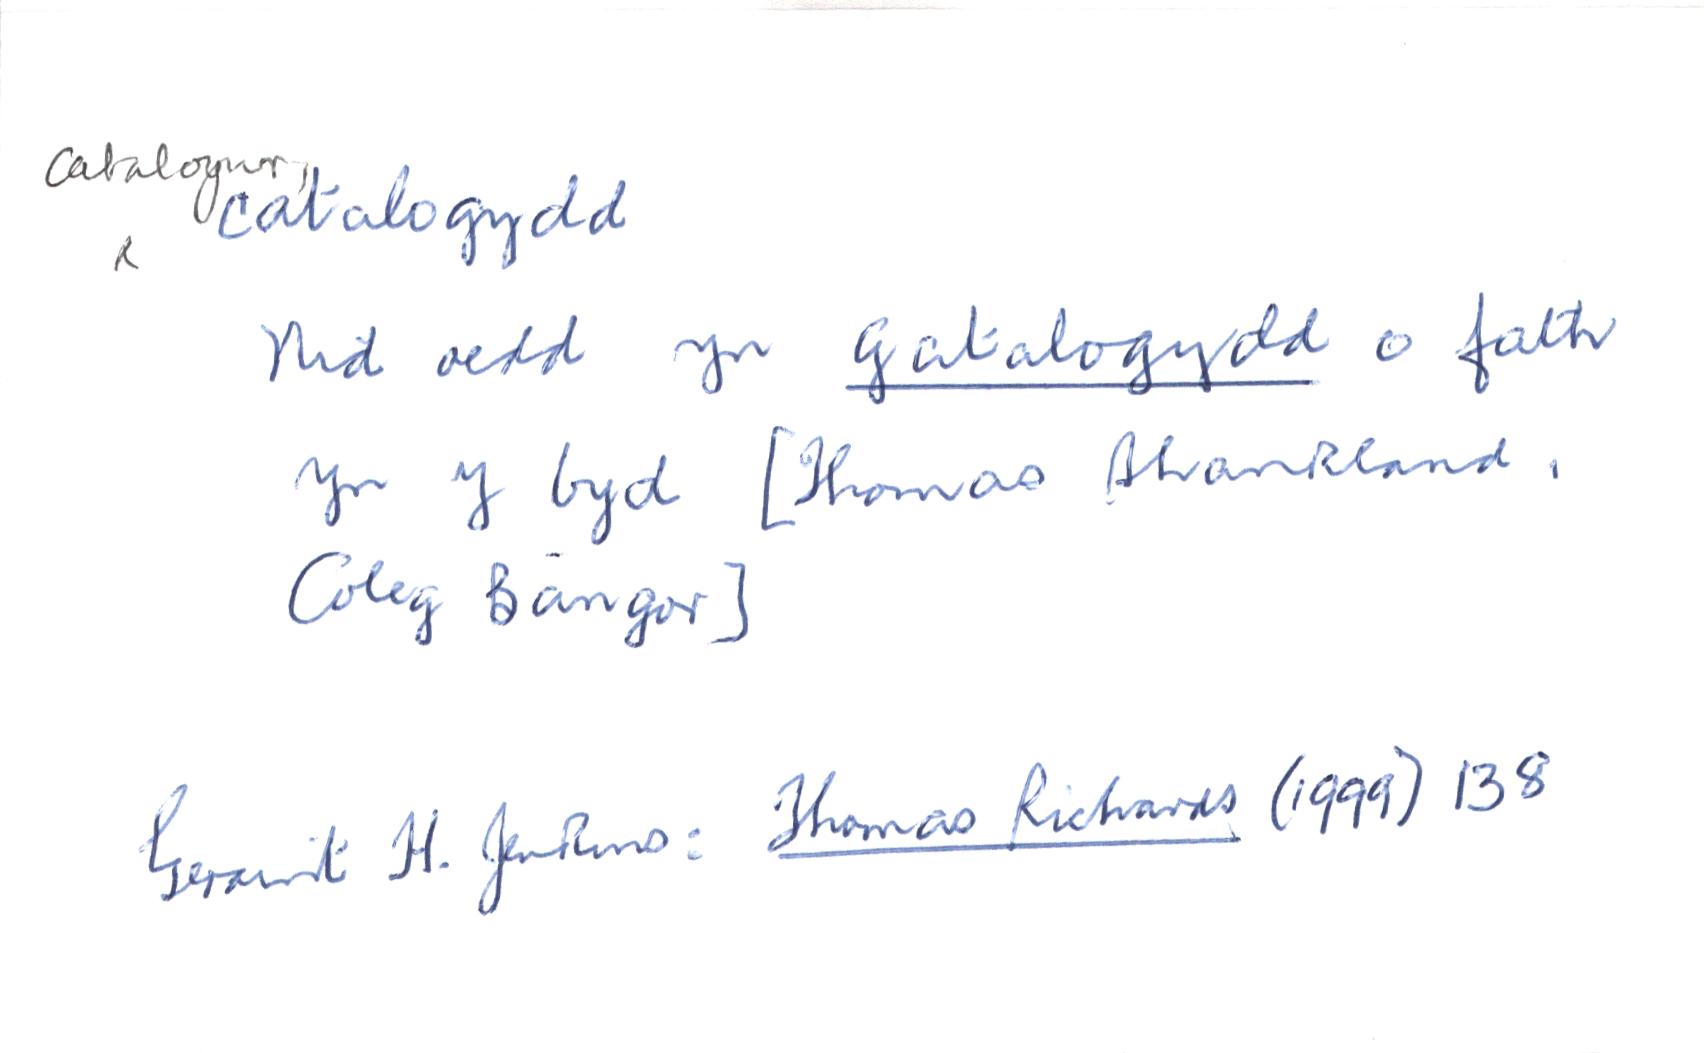 catalogwr,
R
catalogydd
Nid oedd yn gatalogydd o fath
yn y byd [Thomas Shankland,
Coleg Bangor]
Geraint H. Jenkins: Thomas Richards (1999) 138